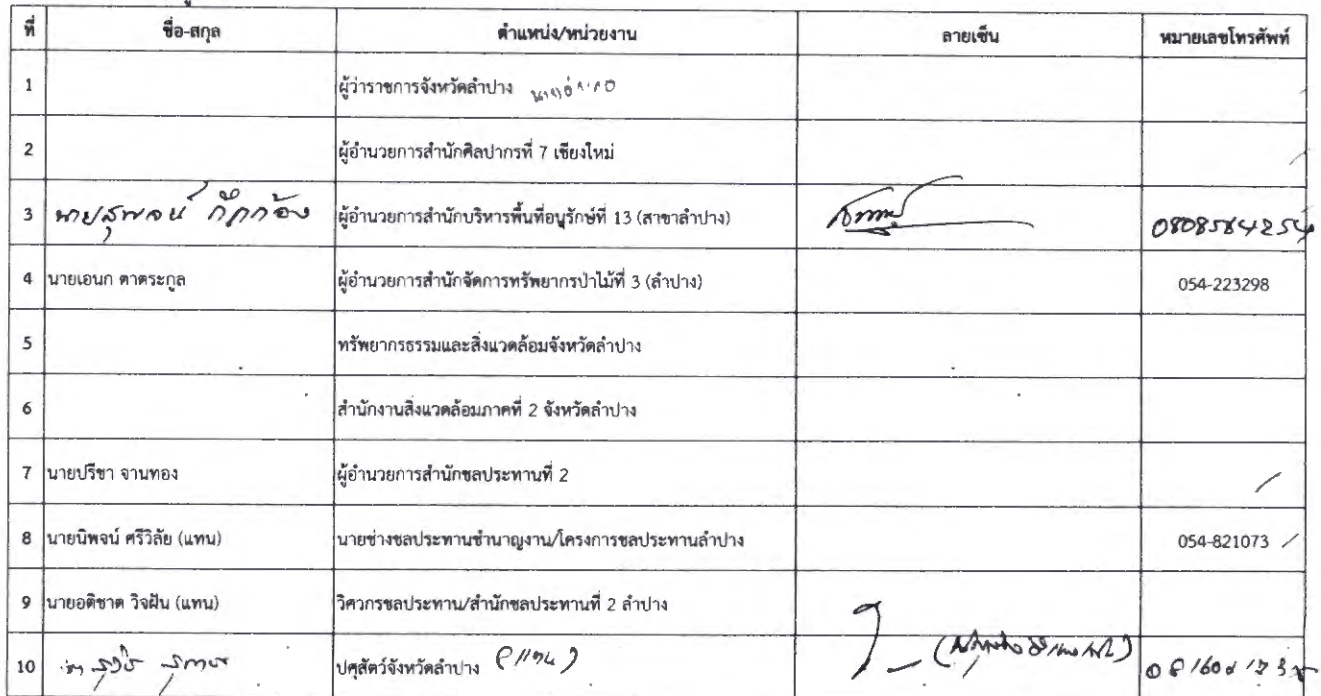 ที่ ชื่อ-สกุล ตำแหน่ง/หน่วยงาน ลายเซ็น หมายเลขโทรศัพท์
1 ผู้ว่าราชการจังหวัดลำปาง
2 ผู้อำนวยการสำนักศิลปากรที่ 7 เชียงใหม่
3 นายสุพจน์ ผู้อำนวยการสำนักบริหารพื้นที่อนุรักษ์ที่ 13 (สาขาลำปาง)
4 นายเอนก ตาตระกูล ผู้อำนวยการสำนักจัดการทรัพยากรป่าไม้ที่ 3 (ลำปาง) 054-223298
5 ทรัพยากรธรรมและสิ่งแวดล้อมจังหวัดลำปาง
6 สำนักงานสิ่งแวดล้อมภาคที่ 2 จังหวัดลำปาง
7 นายปรีชา จานทอง ผู้อำนวยการสำนักชลประทานที่ 2
8 นายนิพจน์ ศรีวิลัย (แทน) นายช่างชลประทานชำนาญงาน/โครงการชลประทานลำปาง 054-821073
9 นายอติชาต วิจฝัน (แทน) วิศวกรชลประทาน/สำนักชลประทานที่ 2 ลำปาง
10 ปศุสัตว์จังหวัดลำปาง (แทน)